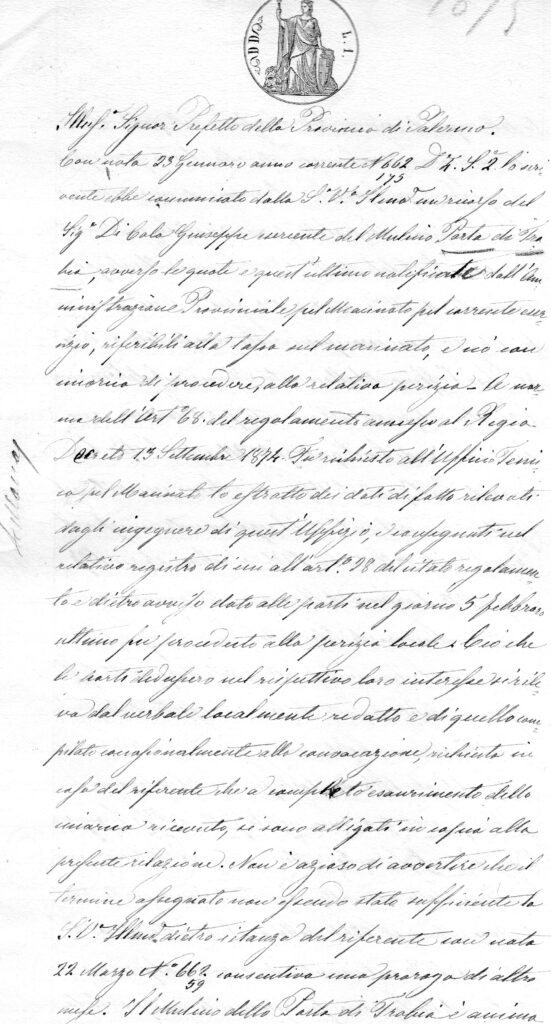 ADD
L. 1.
Ill.º Signor Prefetto della Provincia di Palermo.
Con nota 23 Gennaro anno corrente Nº 662/175 D. Z. S.ª 2.ª lo scri-
vente ebbe comunicato dalla S.ª V.ª Ill.ma un ricorso del
Sig.r Di Cola Giuseppe esercente del Mulino Porta di Tra-
bia, avverso le quote a quest'ultimo notificate dall'Am-
ministrazione Provinciale pel Macinato pel corrente eser-
cizio, riferibili alla tassa sul macinato, e ciò con
incarico di procedere, alla relativa perizia – A nor-
ma dell'Artº 68. del regolamento annesso al Regio
Decreto 13 Settembre 1874. Fu richiesto all'Uffizio Tecni-
co pel Macinato lo estratto dei dati di fatto rilevati
dagli ingegnere di quest'Uffizio, e consegnati nel
relativo registro di cui all'artº. 28 del citato regolamen-
to e dietro avviso dato alle parti nel giorno 5 febbraro
ultimo fu proceduto alla perizia locale. Ciò che
le parti dedussero nel rispettivo loro interesse si rile-
va dal verbale localmente redatto e di quello com-
pilato occasionalmente alla convocazione, richiesta in
casa del riferente che a completo esaurimento dello
incarico ricevuto, si sono alligati in copia alla
presente relazione. Non è ozioso di avvertire che il
termine assegnato non essendo stato sufficiente la
S. V.ª Ill.ma dietro istanza del riferente con nota
22 Marzo Nº 662/59 consentiva una proroga di altro
mese. Il Mulino detto Porta di Trabia è anima